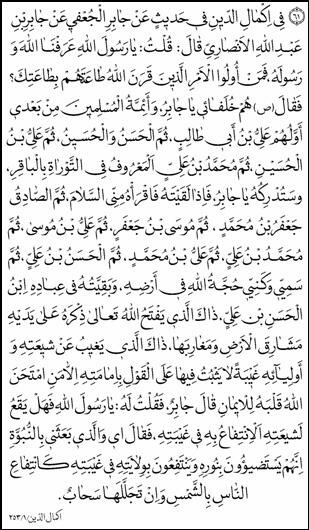 ٦١ فِى اِكْمَالِ الدّينِ فى حَديثٍ عَنْ جابِرِ الْجُعْفي عَنْ جابِرِ بْنِ
عَبْدِ اللهِ الْاَنْصَارِيّ قَالَ: قُلْتُ: يَارَسُولَ اللهِ عَرَفْنَا اللهَ وَ
رَسُولَهُ، فَمَنْ اُولُوا الْاَمْرِ الَّذينَ قَرَنَ اللهُ طَاعَتَهُمْ بِطَاعَتِكَ؟
فَقَالَ (ص) هُمْ خُلَفائى يا جابِرُ، وَ اَئِمَّةُ الْمُسْلِمينَ مِنْ بَعْدى
اَوَّلُهُمْ عَلِىُّ بْنُ اَبى طالِبٍ، ثُمَّ الْحَسَنُ وَ الْحُسَيْنُ، ثُمَّ عَلِىُّ بْنُ
الْحُسَيْنِ، ثُمَّ مُحَمَّدُ بْنُ عَلِىٍّ الْمَعْرُوفُ فِى التَّوْراةِ بِالْباقِرِ،
وَ سَتُدْرِكُهُ يا جابِرُ، فَاِذا لَقيتَهُ فَاقْرَأهُ مِنِّى السَّلامَ، ثُمَّ الصّادِقُ
جَعْفَرُ بْنُ مُحَمَّدٍ، ثُمَّ مُوسَى بْنُ جَعْفَرٍ، ثُمَّ عَلِىُّ بْنُ مُوسى، ثُمَّ
مُحَمَّدُ بْنُ عَلِىٍّ، ثُمَّ عَلِىُّ بْنُ مُحَمَّدٍ، ثُمَّ الْحَسَنُ بْنُ عَلِىٍّ، ثُمَّ
سَمِيّى وَ كَنِيّى حُجَّةُ اللهِ فى اَرْضِهِ، وَ بَقِيَّتُهُ فى عِبادِهِ ابْنُ
الْحَسَنِ بْنِ عَلِىٍّ، ذاكَ الَّذى يَفْتَحُ اللهُ تَعالى ذِكْرُهُ عَلى يَدَيْهِ
مَشارِقَ الْاَرْضِ وَ مَغارِبَها، ذاكَ الَّذى يَغيبُ عَنْ شيعَتِهِ وَ
اَوْلِيائِهِ غَيْبَةً لا يَثْبُتُ فيها عَلَى الْقَوْلِ بِاِمامَتِهِ اِلاّ مَنِ امْتَحَنَ
اللهُ قَلْبَهُ لِلْايمانِ قالَ جابِرٌ: فَقُلْتُ لَهُ: يا رَسُولَ اللهِ فَهَلْ يَقَعُ
لِشيعَتِهِ الْاِنْتِفاعُ بِهِ فى غَيْبَتِهِ، فَقالَ اى وَ الَّذى بَعَثَنى بِالنُّبُوَّةِ
اِنَّهُمْ يَسْتَضيؤُونَ بِنُورِهِ وَ يَنْتَفِعُونَ بِوِلايَتِهِ فى غَيْبَتِهِ كَانْتِفاعِ
النّاسِ بِالشَّمْسِ وَ اِنْ تَجَلَّلَها سَحابٌ.
اكمال الدين ٢٥٣/١